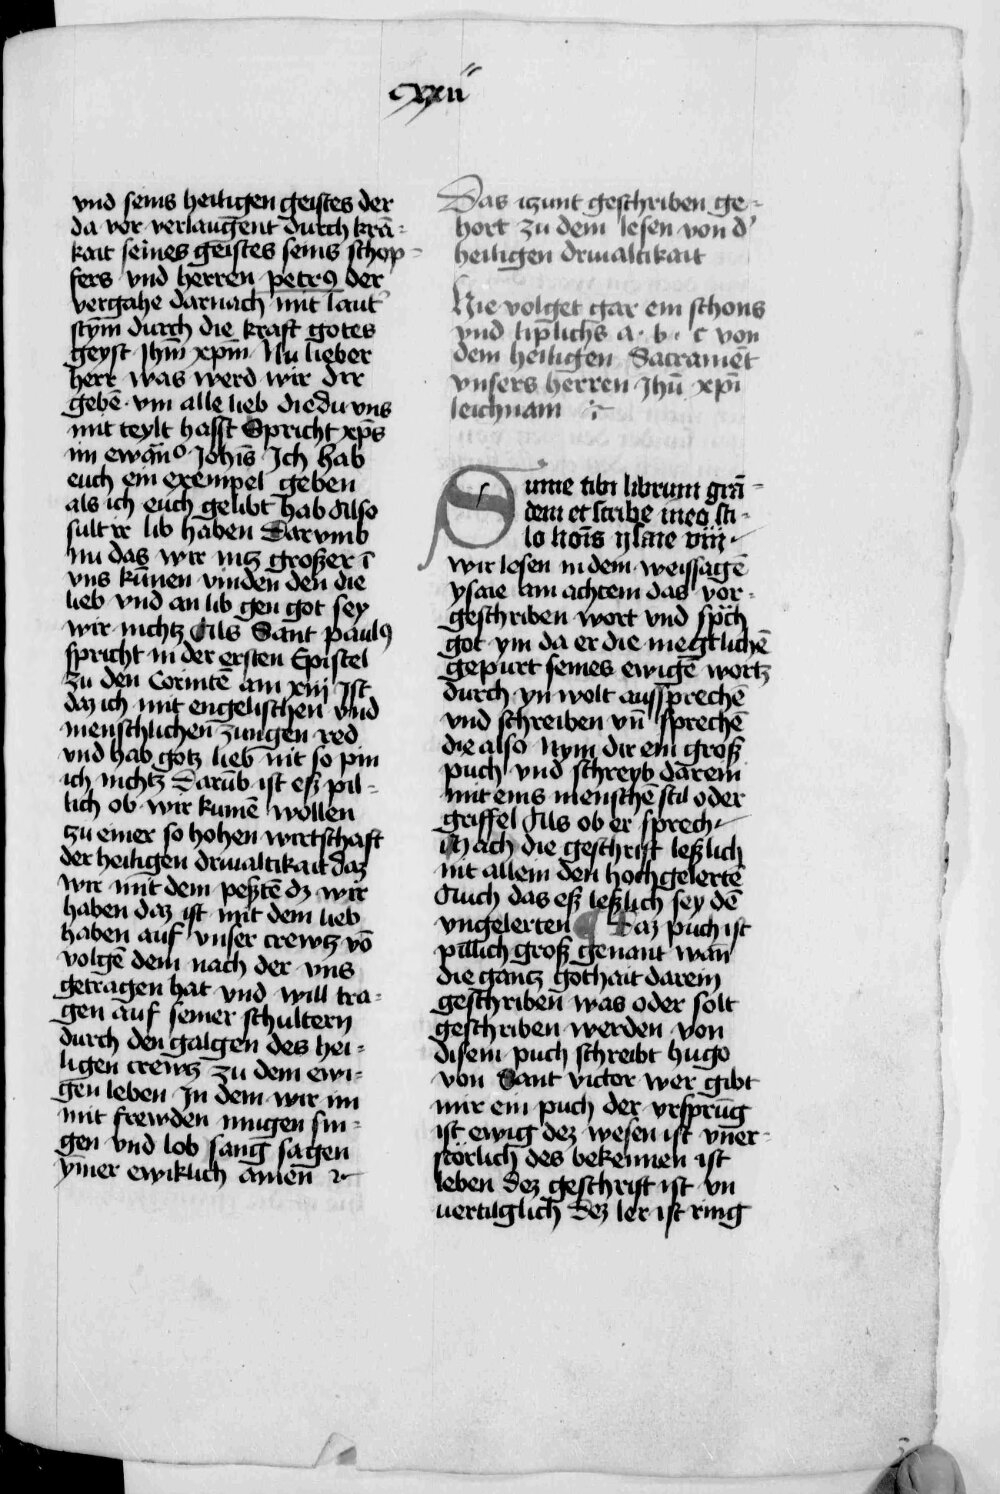 cxxii
vnd seins heiligen geistes der
da vor verlaugent durch krā-
kait seines geistes seins schop-
fers vnd herren petrꝰ der
vergahe darnach mit laut'
stym̄ durch die kraft gotes
geyst Jhm̄ xpm̄ Nu lieber
herr was werd wir dir
gebē vm alle lieb die du vns
mit teylt hasst Spricht xp̄s
im ewān° Joh̄is Ich hab
euch ein exempel geben
als ich euch gelibt hab Also
sult ir lib haben Darvmb
nu das wir nitz großer ī
vns kūnen vinden den die
lieb vnd an lib gen got sey
wir nichtz Als Sant paulꝰ
spricht in der ersten Epistel
zu den Corintē am xiij Ist
daz ich mit engelischen vnd
menschlichen zungen red
vnd hab gotz lieb nit so pin
ich nichtz Darūb ist eß pil-
lich ob wir kumē wollen
zu einer so hohen wirtschaft
der heiligen driualtikait daz
wir mit dem peßtē dz wir
haben daz ist mit dem lieb
haben auf vnser crewtz vō
volgē dem nach der vns
getragen hat vnd will tra-
gen auf seiner schultern
durch den galgen des hei-
ligen crewtz zu dem ewi-
gen leben In dem wir im
mit frewden mugen sin-
gen vnd lob sang sagen
ym̄er ewiklich amen ⁊c
Das itzunt geschriben ge-
hort zu dem lesen von d'
heiligen driualtikait
Hie volget gar ein schons
vnd lip̄lichs a . b . c von
dem heiligen Sacramēt
vnsers herren Jhū xpī
leichnam ⁊c
Sume tibi librum grā-
dem et scribe in eo sti-
lo hoīs ysaie viij
wir lesen in dem weissagē
ysaie am achtem das vor-
geschriben wort vnd sp̄ch
got ym da er die megtlichē
gepurt seines ewigē wortz
durch yn wolt aussprechē
vnd schreiben vn̄ sprechē
die also Nym dir ein groß
puch vnd schreyb darein
mit eins menschē stil oder
griffel Als ob er sprech
Mach die geschrift leßlich
nit allein den hochgelertē
Auch das eß leßlich sey dē
vngelerten ¶ Daz puch ist
pillich groß genant wan̄
die gantz gothait darein
geschriben was oder solt
geschriben werden von
disem puch schreibt hugo
von Sant victor wer gibt
mir ein puch der vrsprūg
ist ewig dez wesen ist vn̄er-
storlich des bekennen ist
leben dez geschrift ist vn
uertilglich Dez ler ist ring